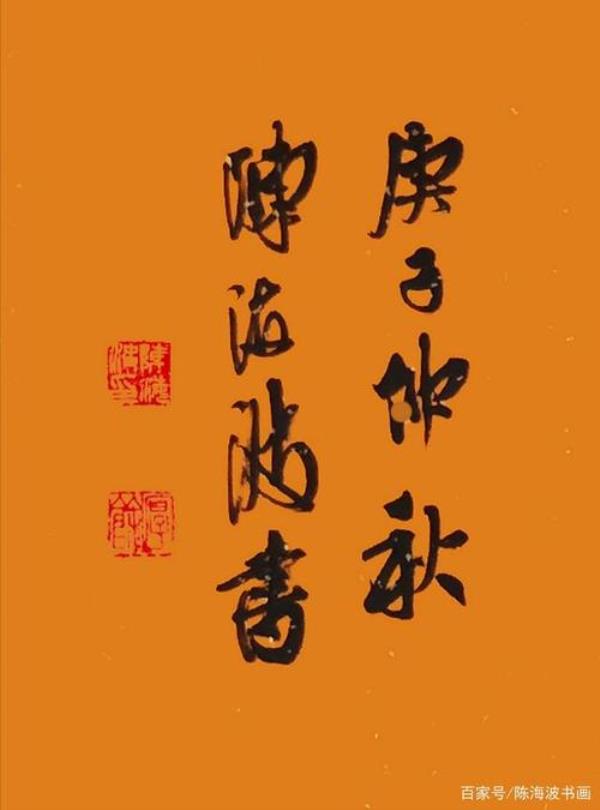 庚子仲秋
陈海波书
陈海波印
百家号/陈海波书画